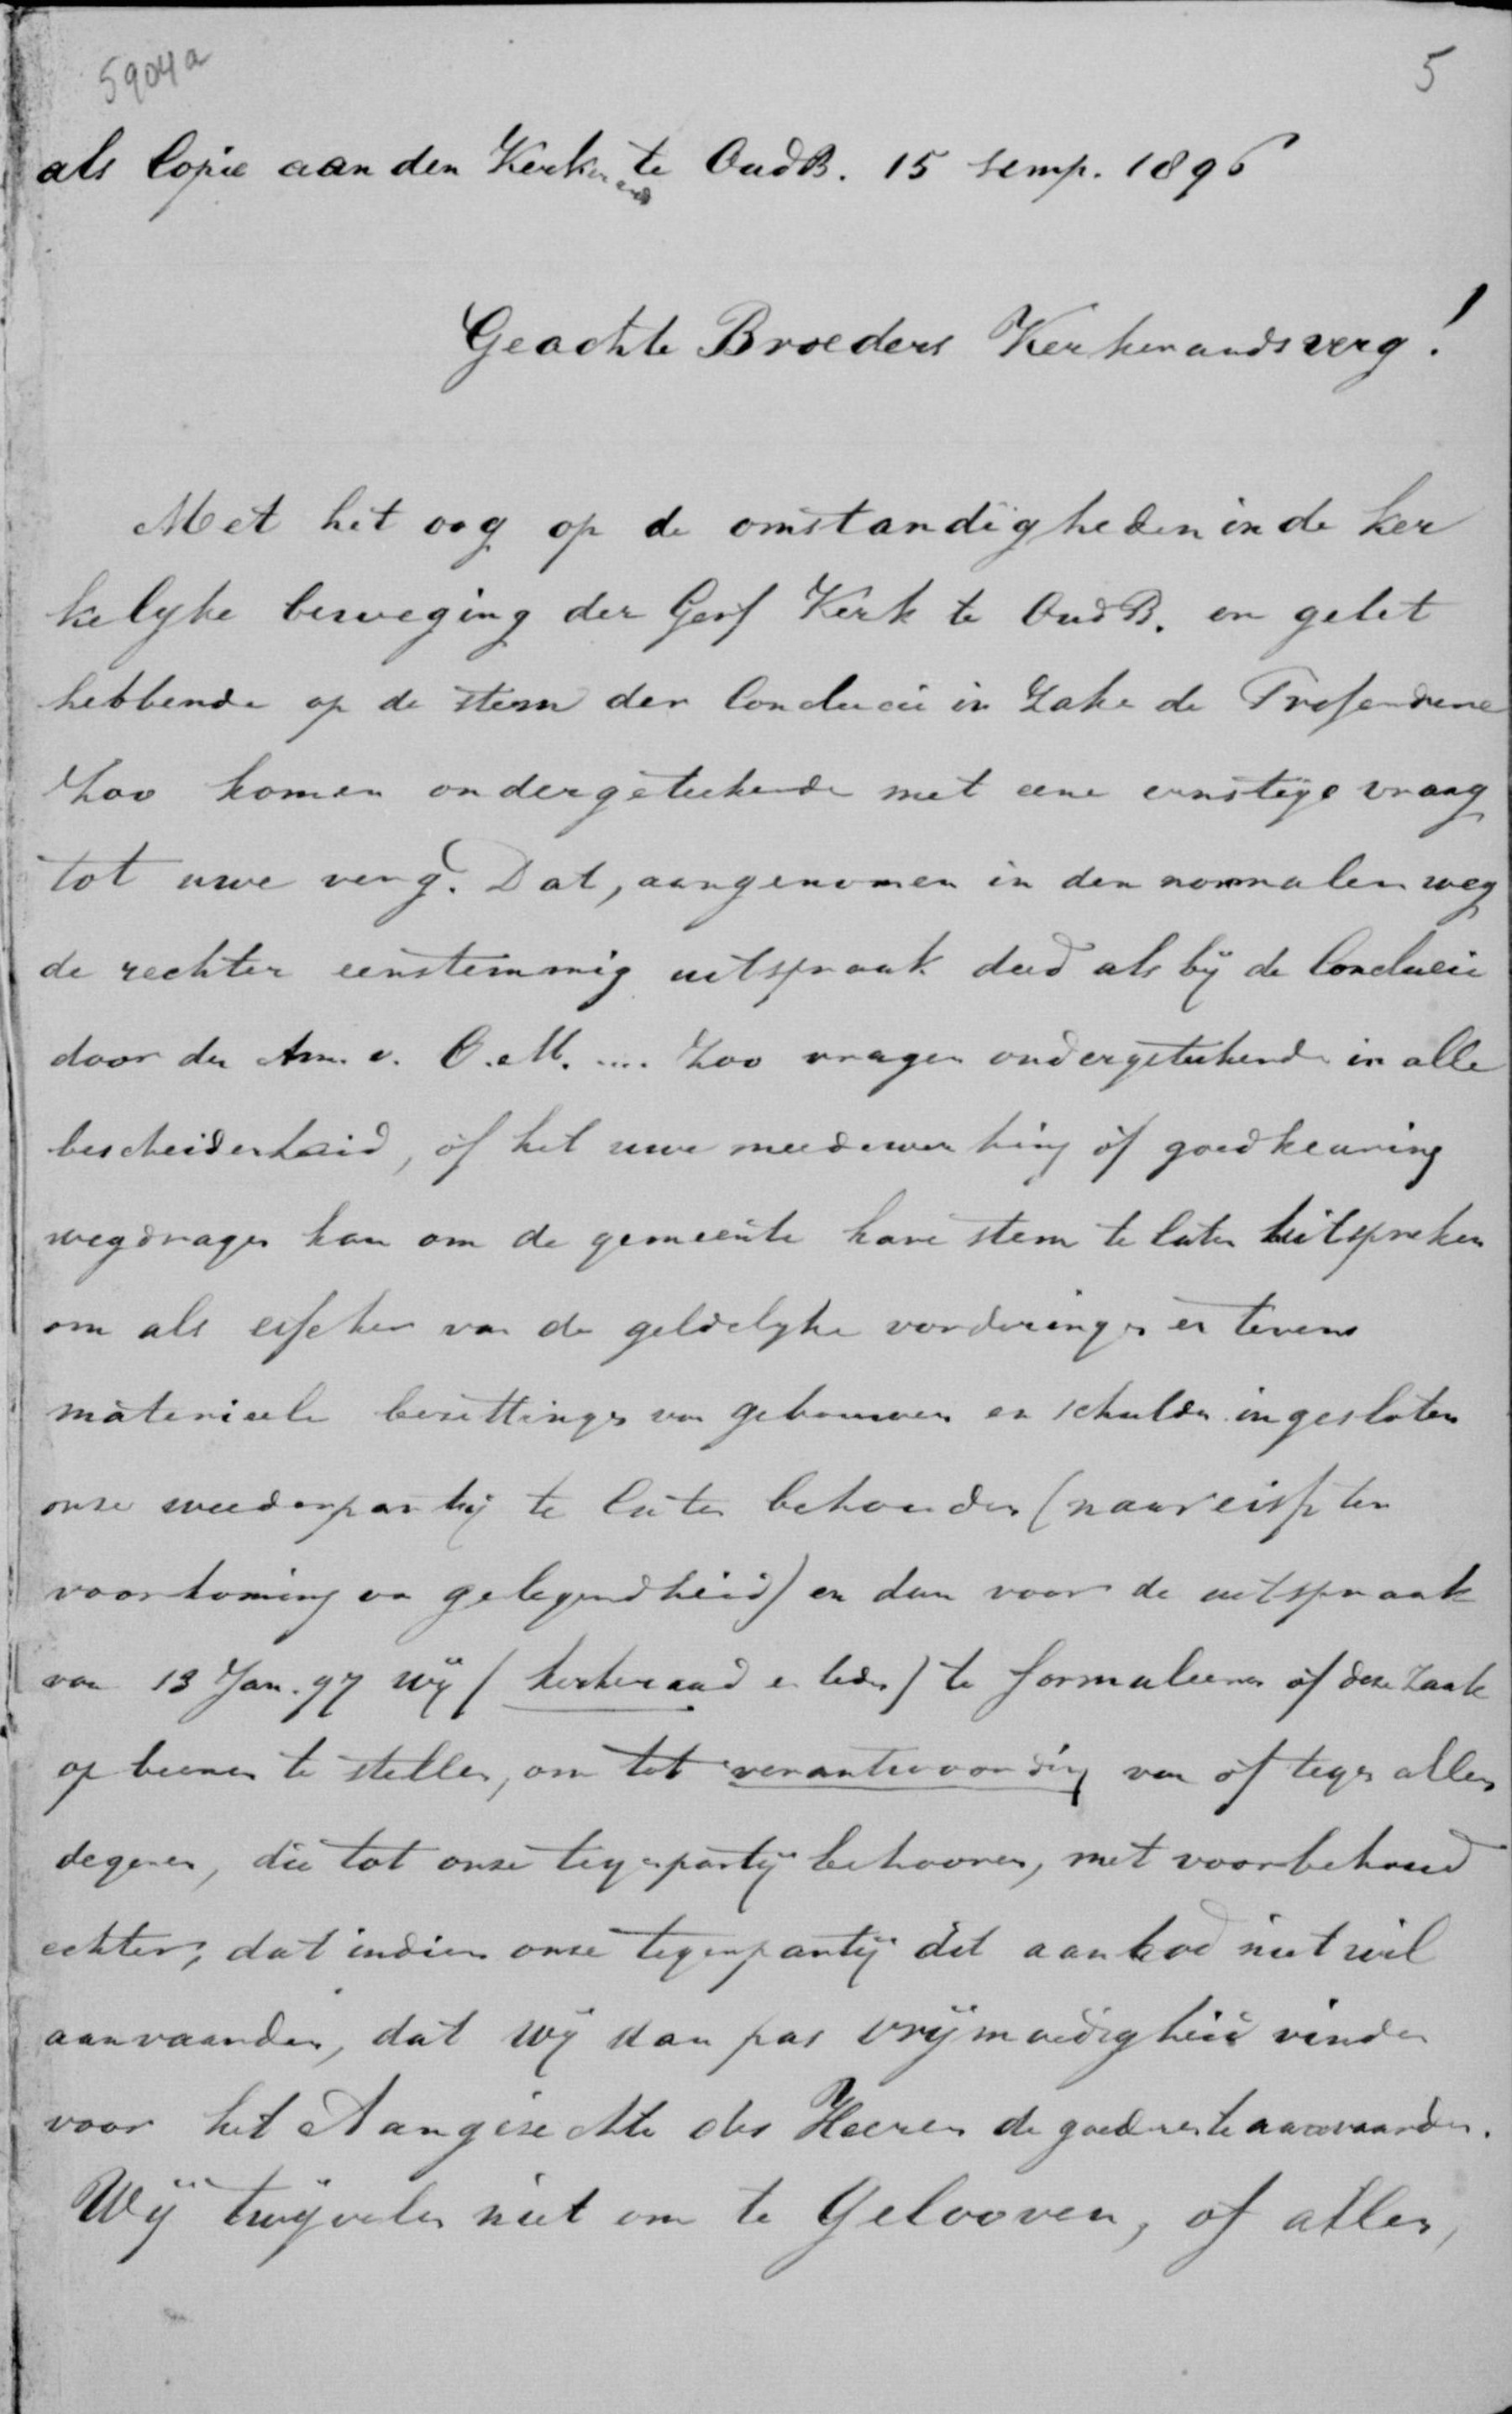 5904a
5
als Copie aan den Kerkeraad te OudB. 15 semp. 1896
Geachte Broeders Kerkenraadsverg!
Met het oog op de omstandigheden in de ker
kelyke beweging der Gerf Kerk te OudB. en gelet
hebbende op de stem der Conclucie in Zake de
Zoo komen ondergeteekende met eene ernstige vraag
tot uwe verg. Dat, aangenomen in den normalen weg
de rechter eenstemmig uitspraak deed als bij de Conclucie
door den Am. v. O.M. .... Zoo vragen ondergeteekende in alle
bescheidenheid, of het uwe meedewerking of goedkeuring
wegdragen kan om de gemeente hare stem te laten uitspreken
om als eischer van de geldelyke vorderingen en tevens
materieele bezittingen van gebouwen en schulden ingesloten
onze weederpartij te laten behouden (naar eisch ter
voorkoming van gelegendheid) en dan voor de uitspraak
van 13 Jan. 97 wij (kerkeraad en leden) te formuleeren of deze Zaak
op beenen te stellen, om tot verantwoording van of tegen allen
degenen, die tot onze tegenpartij behooren, met voorbehoud
echter, dat indien onze tegenpartij dit aanbod niet wil
aanvaarden, dat wij dan pas vrijmoedigheid vinden
voor het Aangezichte des Heeren de goederen te aanvaarden.
Wij twijvelen niet om te Gelooven, of allen,